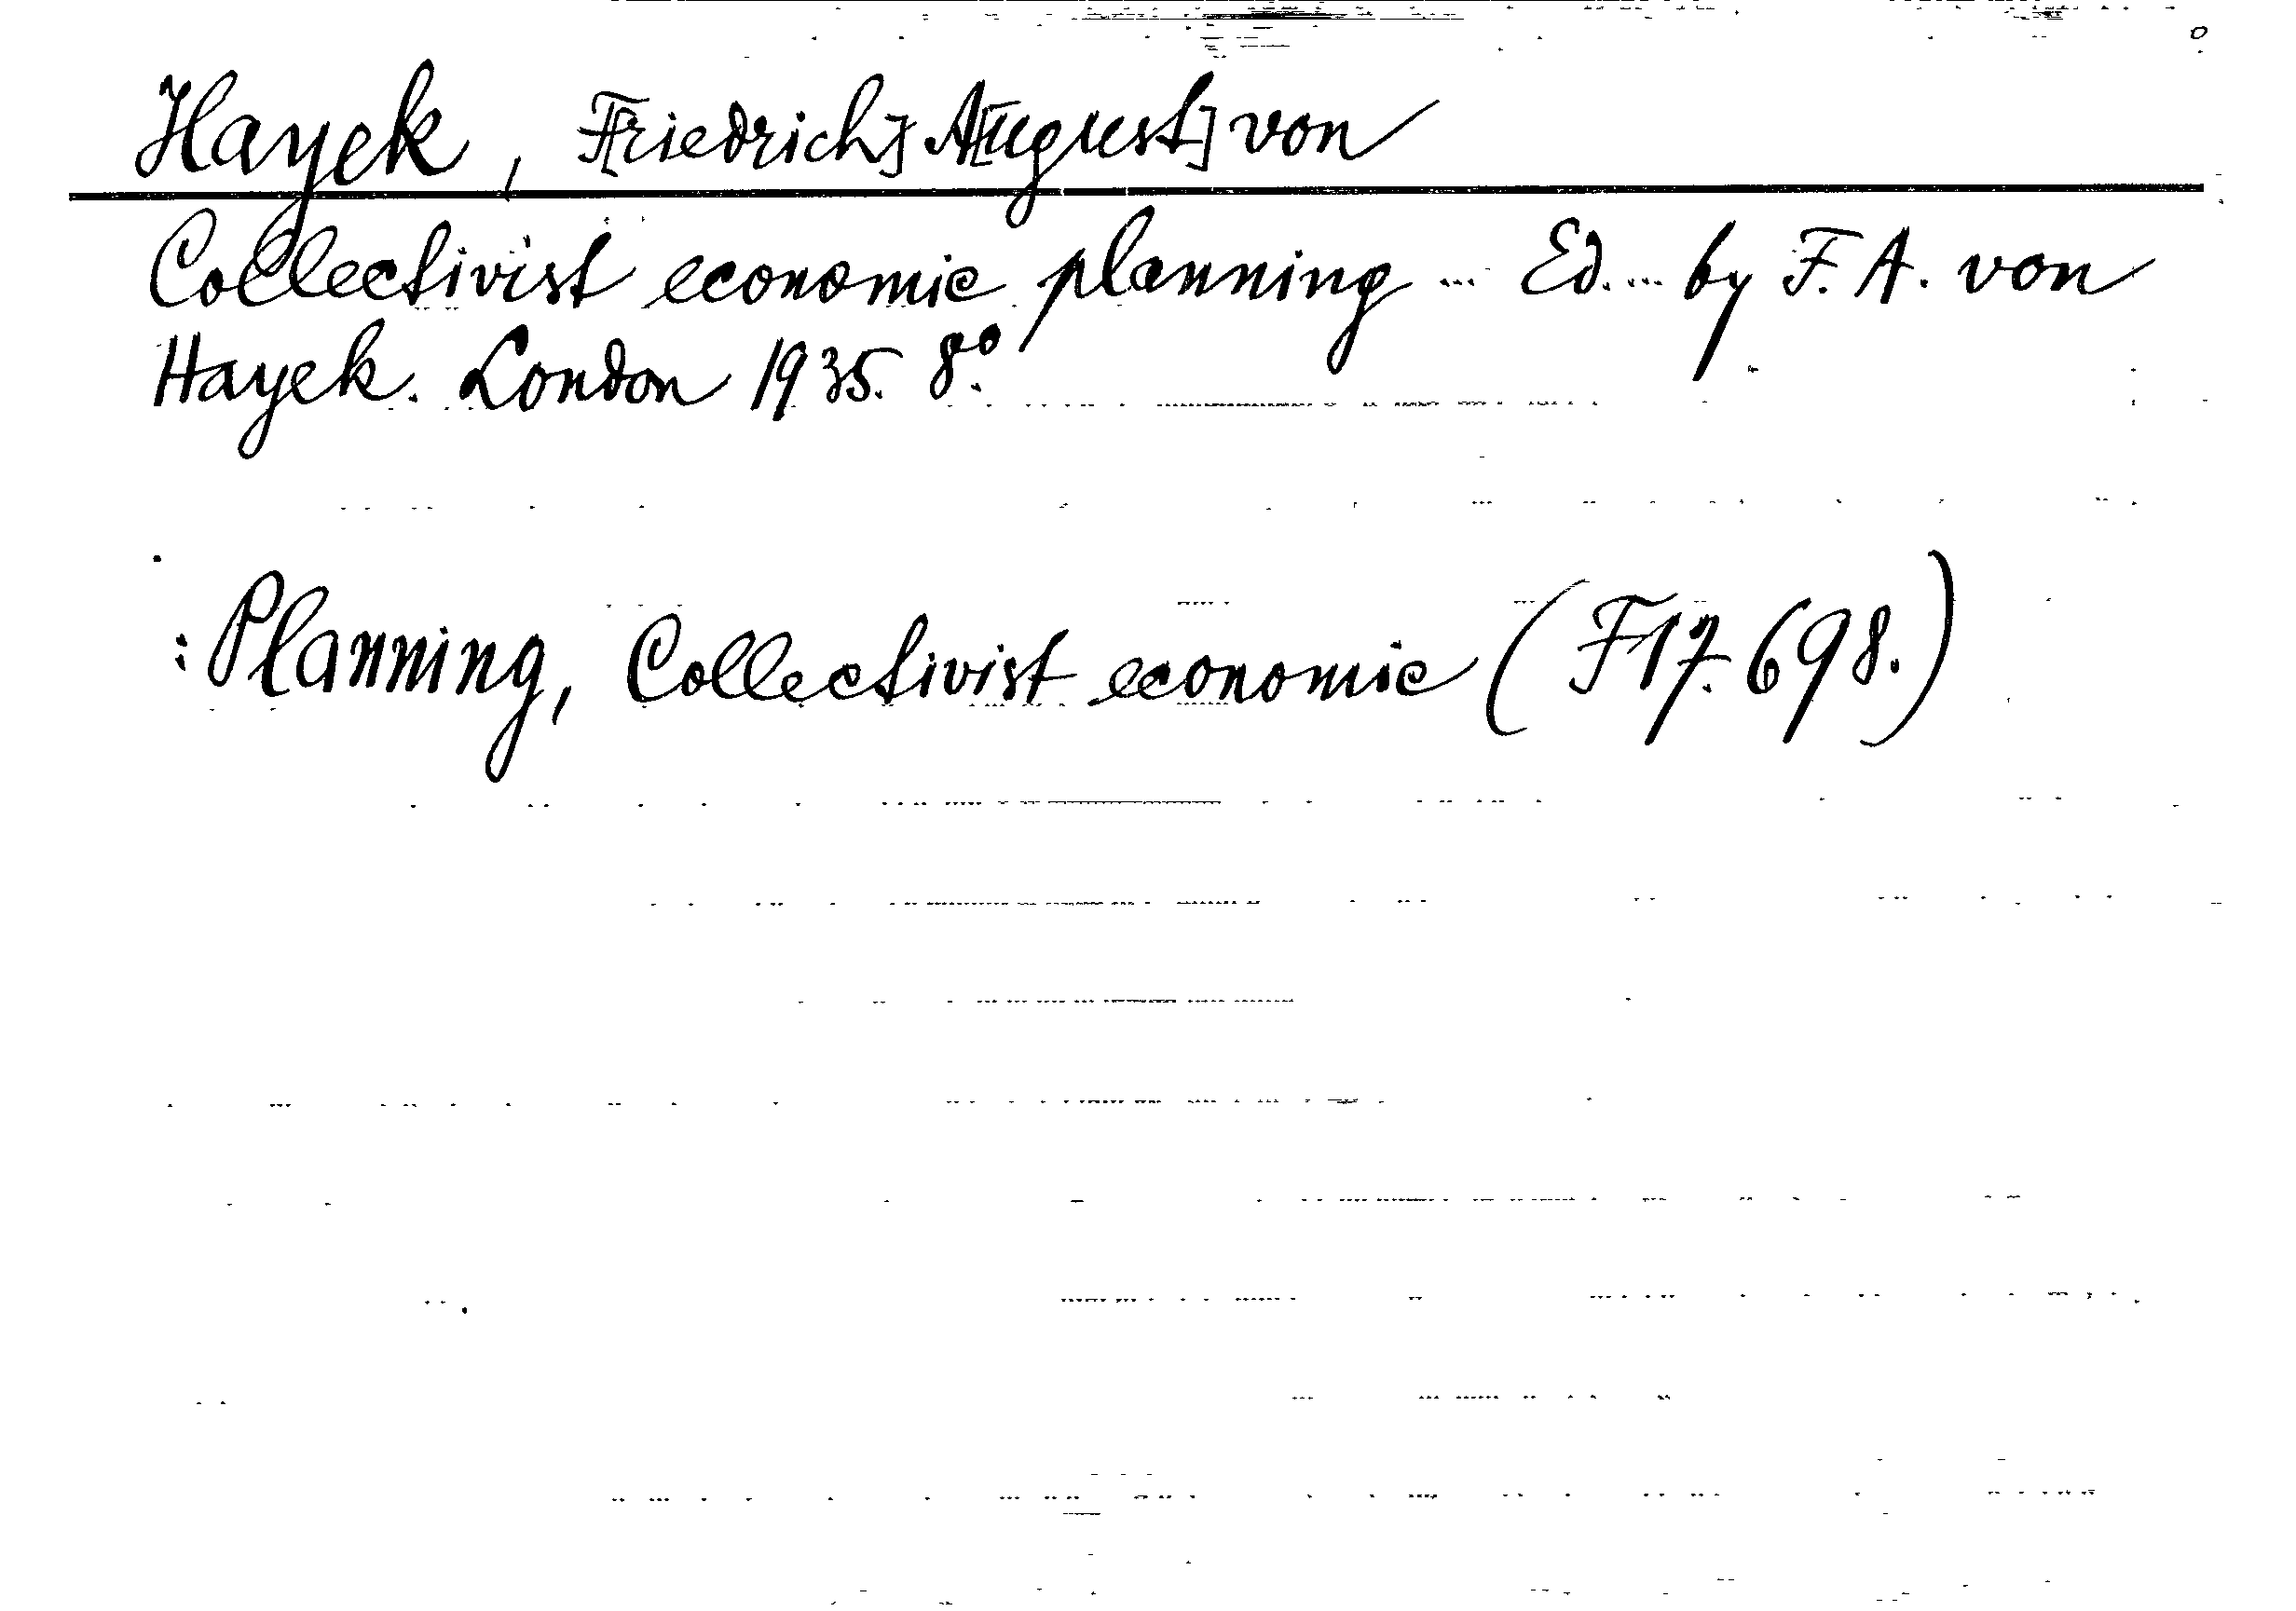 Hayek, F[riedrich] A[ugust] von
Collectivist economic planning ... Ed. ... by F. A. von
Hayek. London 1935. 8.°
: Planning, Collectivist economic (F 17.698.)